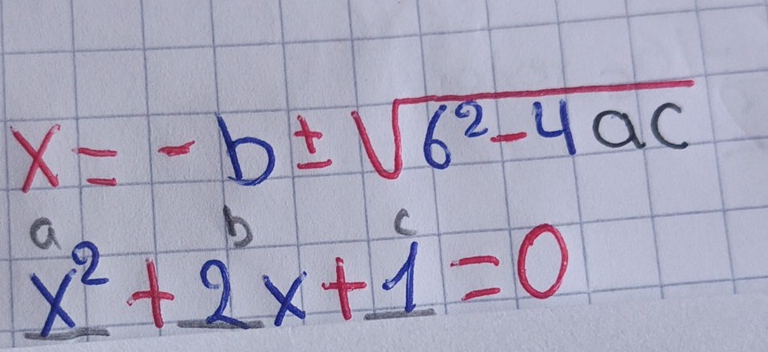 x = - b ± √6² - 4ac
a b c
x² + 2x + 1 = 0